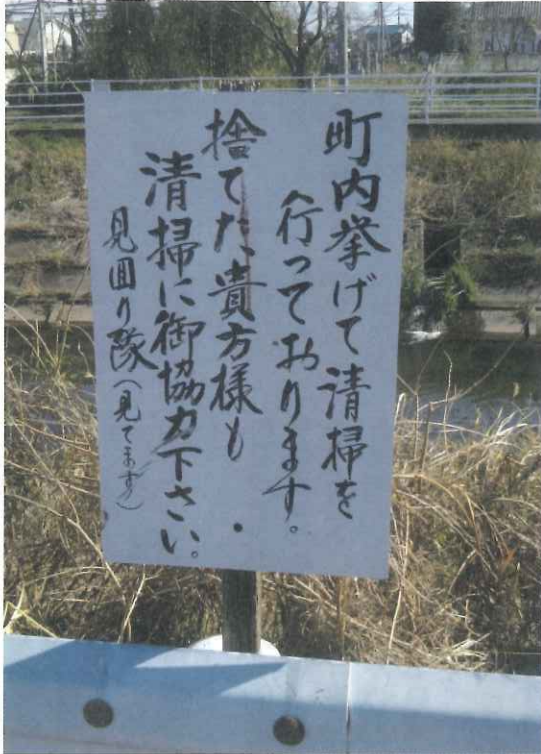 町内挙げて清掃を
行っております。
捨てた貴方様も
清掃に御協力下さい。
見回り隊(見てます)